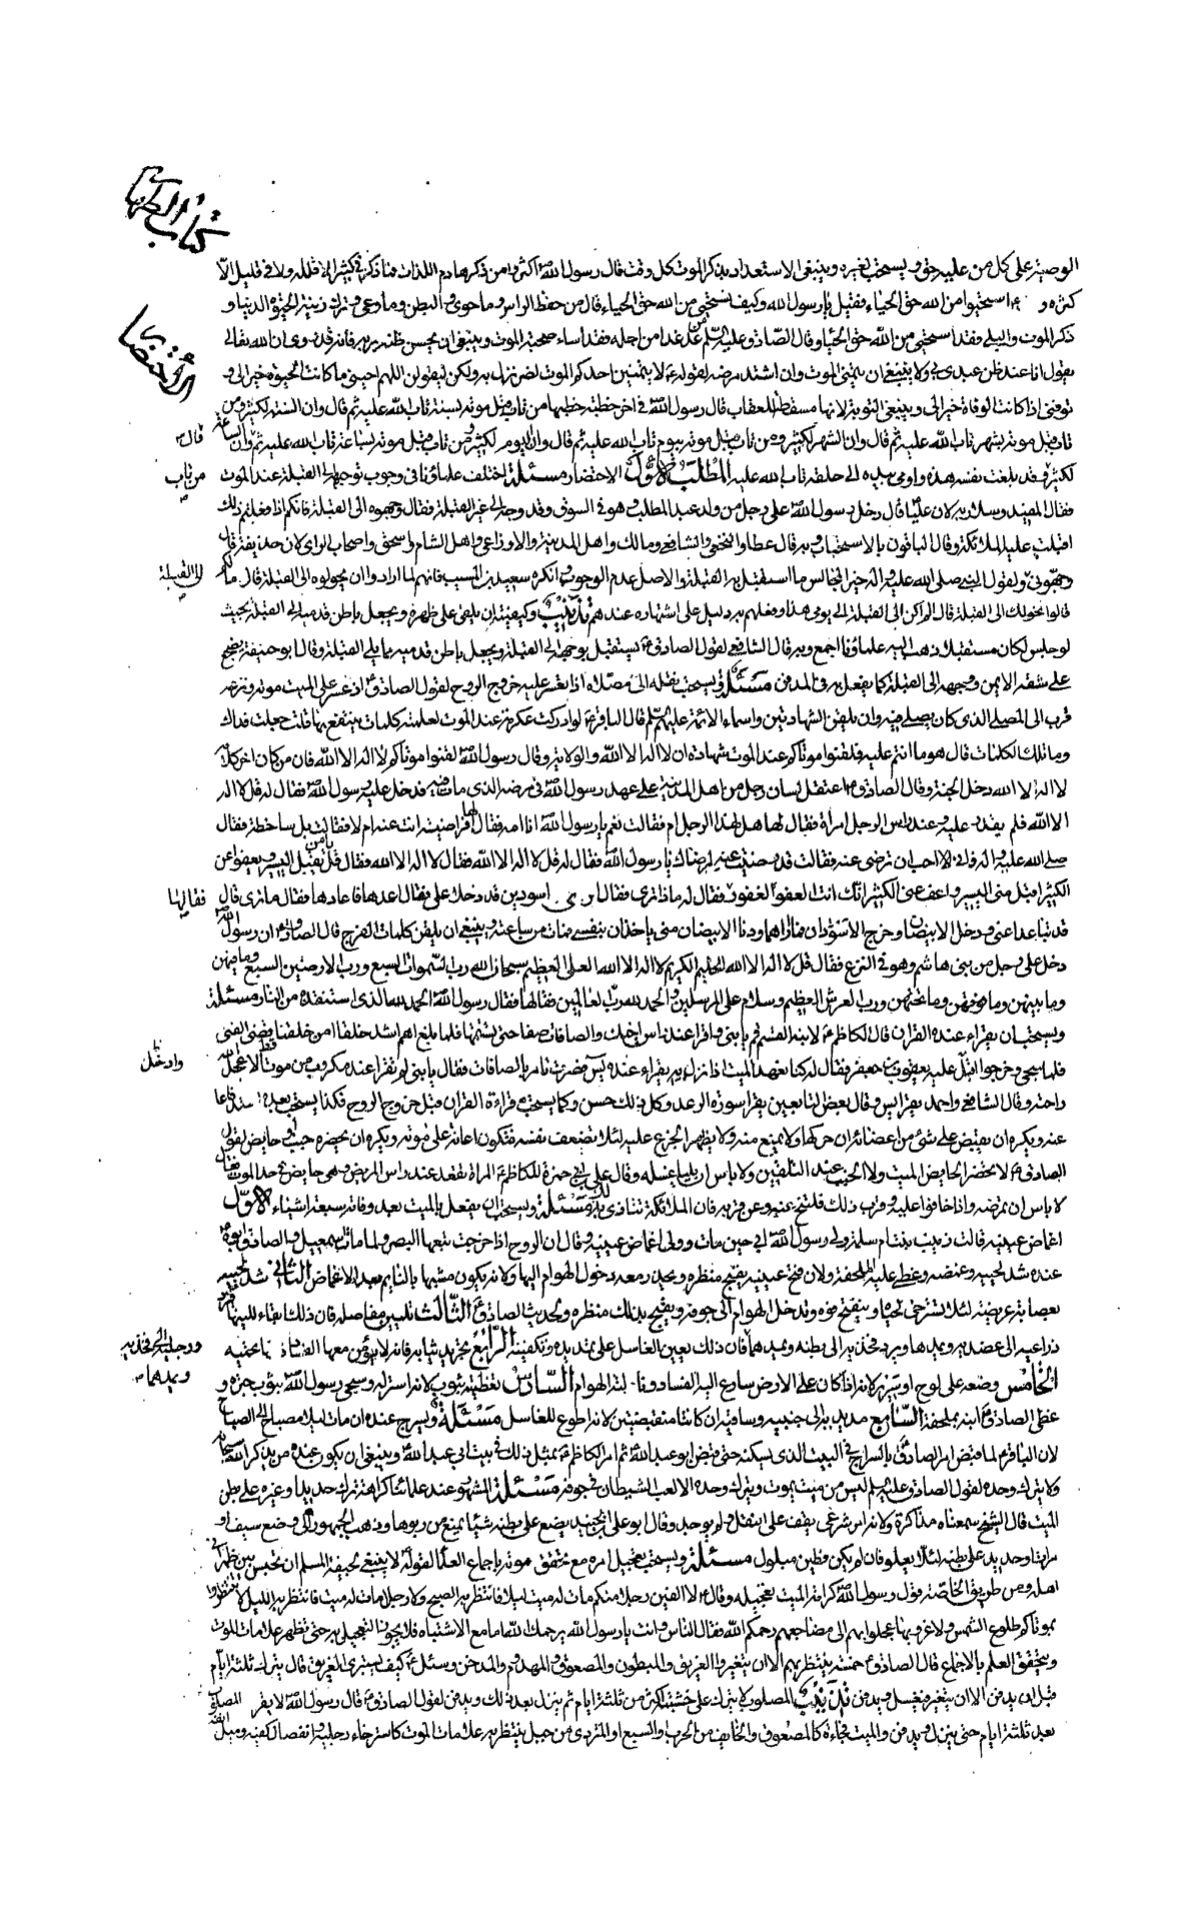 كتاب الطهارة
الاحتضار
الوصية على كل من عليه حق ويستحب لغيره وينبغي الاستعداد بذكر الموت كل وقت قال رسول الله ص أكثروا من ذكر هادم اللذات فما ذكر في كثير إلا قلله ولا في قليل إلا
كثره و استحيوا من الله حق الحياء فقيل يا رسول الله وكيف نستحيي من الله حق الحياء قال من حفظ الرأس وما حوى والبطن وما وعى وترك زينة الحيوة الدنيا و
ذكر الموت والبلى فقد استحيى من الله حق الحياء وقال الصادق عليه السلم من عد غدا من أجله فقد أساء صحبة الموت وينبغي أن يحسن ظنه بربه فانه قد روى ان الله تعالى
يقول انا عند ظن عبدي بي ولا ينبغي ان يتمنى الموت وان اشتد مرضه لقوله ع لا يتمنين احدكم الموت لضر نزل به ولكن ليقولن اللهم احيني ما كانت الحيوة خيرا لي و
توفني اذا كانت الوفاة خيرا لي وينبغي التوبة لانها مسقطة للعقاب قال رسول الله ص في اخر خطبة خطبها من تاب قبل موته بسنة تاب الله عليه ثم قال وان السنة لكثيرة ومن
تاب قبل موته بشهر تاب الله عليه ثم قال وان الشهر لكثير ومن تاب قبل موته بيوم تاب الله عليه ثم قال وان اليوم لكثير ومن تاب قبل موته بساعة تاب الله عليه ثم وان الساعة
قال
لكثيرة وقد بلغت نفسه هذه واومى بيده الى حلقه تاب الله عليه المطلب الاول الاحتضار مسئلة اختلف علماؤنا في وجوب توجيهه الى القبلة عند الموت
من تاب
فقال المفيد وسلار به لان عليا قال دخل رسول الله ص على رجل من ولد عبد المطلب وهو في السوق وقد وجه الى غير القبلة فقال وجهوه الى القبلة فانكم اذا فعلتم ذلك
اقبلت عليه الملائكة وقال الباقون بالاستحباب وبه قال عطا والنخعي والشافعي ومالك واهل المدينة والاوزاعي واهل الشام واسحق واصحاب الراي لان حذيفة قال
وجهوني ولقول النبي صلى الله عليه واله خير المجالس ما استقبل به القبلة والاصل عدم الوجوب وانكره سعيد بن المسيب فانهم لما ارادوا ان يحولوه الى القبلة قال ما لكم
الى القبلة
قالوا نحولك الى القبلة قال الم اكن الى القبلة الى يومي هذا وفعلهم به دليل على اشتهاره عندهم تذنيب وكيفيته ان يلقى على ظهره ويجعل باطن قدميه الى القبلة بحيث
لو جلس لكان مستقبلا ذهب اليه علماؤنا اجمع وبه قال الشافعي لقول الصادق ع يستقبل بوجهه الى القبلة ويجعل باطن قدميه مما يلي القبلة وقال ابو حنيفة يضجع
على شقه الايمن ووجهه الى القبلة كما يفعل به في المدفن مسئلة ويستحب نقله الى مصلاه اذا تعسر عليه خروج الروح لقول الصادق ع اذا عسر على الميت موته ونزعه
قرب الى المصلى الذي كان يصلى فيه وان يلقن الشهادتين واسماء الائمة عليهم السلم قال الباقر ع لو ادركت عكرمة عند الموت لعلمته كلمات ينتفع بها قلت جعلت فداك
وما تلك الكلمات قال هو ما انتم عليه فلقنوا موتاكم عند الموت شهادة ان لا اله الا الله والولاية وقال رسول الله ص لقنوا موتاكم لا اله الا الله فان من كان اخر كلامه
لا اله الا الله دخل الجنة وقال الصادق ع اعتقل لسان رجل من اهل المدينة على عهد رسول الله ص في مرضه الذي مات فيه فدخل عليه رسول الله ص فقال له قل لا اله
الا الله فلم يقدر عليه وعند راس الرجل امرأة فقال لها هل لهذا الرجل ام فقالت نعم يا رسول الله ص انا امه فقال لها افراضية انت عنه ام لا فقالت بل ساخطة فقال
صلى الله عليه واله فاني احب ان ترضى عنه فقالت قد رضيت عنه لرضاك يا رسول الله فقال له قل لا اله الا الله فقال لا اله الا الله فقال قل يا من يقبل اليسير ويعفو عن
الكثير اقبل مني اليسير واعف عني الكثير انك انت العفو الغفور فقال له ماذا ترى فقال ارى اسودين قد دخلا على فقال اعدها فاعادها فقال ما ترى قال
فقالها
قد تباعدا عني ودخل الابيضان وخرج الاسودان فما اراهما ودنا الابيضان مني ياخذان بنفسي فمات من ساعته وينبغي ان يلقن كلمات الفرج قال الصادق ع ان رسول الله ص
دخل على رجل من بني هاشم وهو في النزع فقال قل لا اله الا الله الحليم الكريم لا اله الا الله العلى العظيم سبحان الله رب السموات السبع ورب الارضين السبع وما فيهن
وما بينهن وما فوقهن وما تحتهن ورب العرش العظيم وسلام على المرسلين والحمد لله رب العالمين فقالها فقال رسول الله ص الحمد لله الذي استنقذه من النار مسئلة
ويستحب ان يقراء عنده القران قال الكاظم ع لابنه القسم قم يا بني واقرا عند راس اخيك والصافات صفا حتى تستتمها فلما بلغ اهم اشد خلقا ام من خلقنا قضى الفتى
فلما سجي وخرجوا اقبل عليه يعقوب بن جعفر فقال له كنا نعهد الميت اذا نزل به يقراء عنده يس فصرت تامر بالصافات فقال يا بني لم تقرا عند مكروب من موت الا عجل الله
وادخل
راحته وقال الشافعي واحمد يقرا يس وقال بعض التابعين يقرا سورة الرعد وكل ذلك حسن وكما يستحب قراءة القران قبل خروج الروح فكذا يستحب بعده استدفاعا
عنه ويكره ان يقبض على شئ من اعضائه ان حركها ولا يمنع منه ولا يظهر الجزع عليه لئلا تضعف نفسه فتكون اعانة على موته ويكره ان يحضره جنب او حايض لقول
الصادق ع لا تحضر الحايض الميت ولا الجنب عند التلقين ولا باس ان يليا غسله وقال علي بن ابي حمزة للكاظم ع المراة تقعد عند راس المريض وهي حايض في حد الموت فقال
لا باس ان تمرضه واذا خافوا عليه وقرب ذلك فلتنح عنه وعن قربه فان الملائكة تتاذى بذلك مسئلة ويستحب ان يفعل بالميت بعد وفاته سبعة اشياء الاول
اغماض عينيه قالت زينب بنت ام سلمة ولي رسول الله ص ابي حين مات وولى اغماض عينيه وقال ان الروح اذا خرجت تبعها البصر ولما مات اسمعيل بن الصادق ابوه
عنده شد لحييه وغمضه وغطى عليه الملحفة ولان فتح عينيه يقبح منظره ويحذر معه دخول الهوام اليها ولانه يكون مشبها بالنايم بعد الاغماض الثاني شد لحييه
بعصابة عريضة لئلا تسترخي لحياه وينفتح فوه وتدخل الهوام الى جوفه ويقبح بذلك منظره ولحديث الصادق ع الثالث تليين مفاصله فان ذلك ابقاء للينها فيرد
ذراعيه الى عضديه ويمدهما ويرد فخذيه الى بطنه ويمدهما فان ذلك يعين الغاسل على تمديده وتكفينه الرابع تجريد ثيابه فانه لا يؤمن معها الفساد
ورجليه الى فخذيه
ويمدهما ص
الخامس وضعه على لوح او سرير لانه اذا كان على الارض سارع اليه الفساد ونالته الهوام السادس تغطيته بثوب لانه استر له وسجى رسول الله ص بثوب حبرة و
غطى الصادق ع ابنه بملحفة السابع مد يديه الى جنبيه وساقيه ان كانتا منقبضتين لانه اطوع للغاسل مسئلة ويسرج عنده ان مات ليلا مصباح الى الصباح
لان الباقر ع لما قبض امر الصادق ع بالسراج في البيت الذي يسكنه حتى قبض ابو عبد الله ع ثم امر الكاظم ع بمثل ذلك في بيت ابي عبد الله ع وينبغي ان يكون عنده من يذكر الله سبحانه
ولا يترك وحده لقول الصادق عليه السلم ليس من ميت يموت ويترك وحده الا لعب الشيطان في جوفه مسئلة المشهور عند علمائنا كراهة ترك حديد او غيره على بطن
الميت قال الشيخ سمعناه مذاكرة ولانه امر شرعي يقف على النقل ولم يوجد وقال ابو علي بن الجنيد يضع على بطنه شيئا يمنع من ربوها وذهب الجمهور الى وضع سيف او
مراة او حديد على بطنه لئلا يعلو فان لم يكن فطين مبلول مسئلة ويستحب تعجيل امره مع تحقق موته باجماع العلماء لقوله ع لا ينبغي لجيفة المسلم ان تحبس بين ظهراني
اهله ومن طريق الخاصة قول رسول الله ص كرامة الميت تعجيله وقال ع لا الفين رجلا منكم مات له ميت ليلا فانتظر به الصبح ولا رجلا مات له ميت فانتظر به الليل لا تنتظروا
بموتاكم طلوع الشمس ولا غروبها عجلوا بهم الى مضاجعهم رحمكم الله فقال الناس وانت يا رسول الله يرحمك الله اما مع الاشتباه فلا يجوز التعجيل به حتى تظهر علامات الموت
ويتحقق العلم بالاجماع قال الصادق ع خمسة ينتظر بهم الا ان يتغيروا الغريق والمبطون والمصعوق والمهدوم والمدخن وسئل ع كيف يستبرى الغريق قال يترك ثلثة ايام
قبل ان يدفن الا ان يتغير فيغسل ويدفن تذنيب المصلوب لا يترك على خشبته اكثر من ثلثة ايام ثم ينزل بعد ذلك ويدفن لقول الصادق ع قال رسول الله ص لا يقر المصلوب
بعد ثلثة ايام حتى ينزل ويدفن والميت فجاءة كالمصعوق والخايف من الحرب والسبع او المتردي من جبل ينتظر به علامات الموت كاسترخاء رجليه وانفصال كفيه وميل انفه